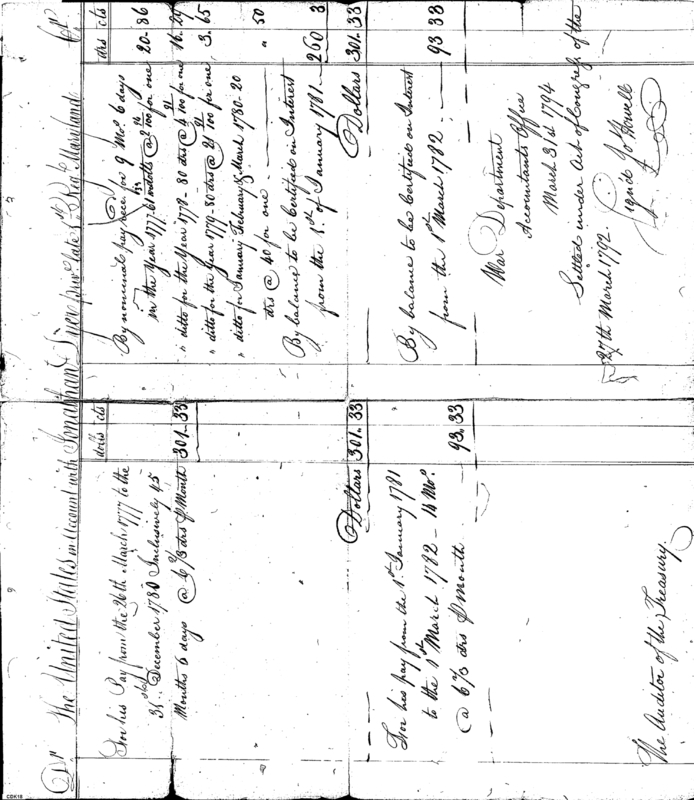 Dr The United States in Account with Jonathan Dyer priv.t late 5th Reg.t Maryland Cr
dolls cts
For his Pay from the 26th March 1777 to the
31st December 1780 Inclusively 45
Months 6 days @ 6 2/3 drs ⅌ Month 301. 33
Dollars 301. 33
For his pay from the 1st January 1781
to the 1st March 1782 - 14 Mos.
@ 6 2/3 drs ⅌ month 93. 33
The Auditor of the Treasury.
drs cts
By nominal pay rece.d for 9 Mos 6 days
in the Year 1777 @ for one 20. 86
" ditto for the Year 1778 - 80 drs @ for one 16. 29
" ditto for the Year 1779 - 80 drs @ for one 3. 65
" ditto for January February & March 1780 - 20
drs @ 40 for one " 50
By balance to be Certified on Interest
from the 1st of January 1781 260 3
Dollars 301. 33
By balance to be Certified on Interest
from the 1st March 1782 93 33
War Department
Accountants Office
March 31st 1794
Settled under Act of Congress of the
27th March 1792.
Signed Jo Howell
CDK18